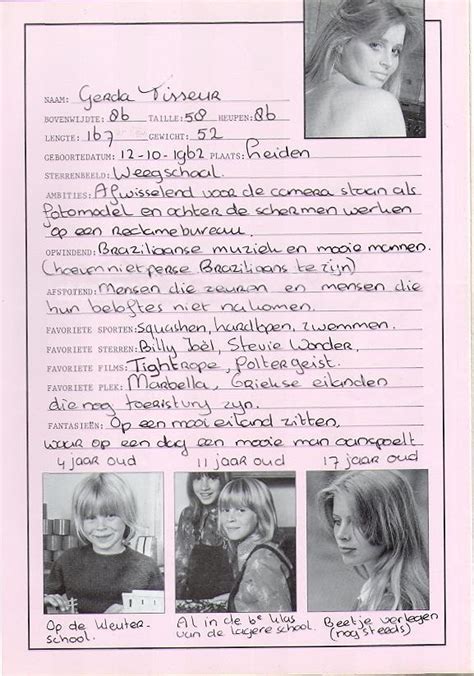 NAAM: Gerda Visseur
BOVENWIJDTE: 86 TAILLE: 58 HEUPEN: 86
LENGTE: 167 GEWICHT: 52
GEBOORTEDATUM: 12-10-1962 PLAATS: Leiden
STERRENBEELD: Weegschaal.
AMBITIES: Afwisselend voor de camera staan als
fotomodel en achter de schermen werken
op een reclamebureau.
OPWINDEND: Braziliaanse muziek en mooie mannen.
(hoeven niet perse Braziliaans te zijn)
AFSTOTEND: Mensen die zeuren en mensen die
hun beloftes niet nakomen.
FAVORIETE SPORTEN: squashen, hardlopen, zwemmen.
FAVORIETE STERREN: Billy Joël, Stevie Wonder.
FAVORIETE FILMS: Tightrope, Poltergeist.
FAVORIETE PLEK: Marbella, Griekse eilanden
die nog toeristvrij zijn.
FANTASIEËN: Op een mooi eiland zitten,
waar op een dag een mooie man aanspoelt
4 jaar oud 11 jaar oud 17 jaar oud
Op de kleuter-
school.
Al in de 6e klas
van de lagere school.
Beetje verlegen
(nog steeds)